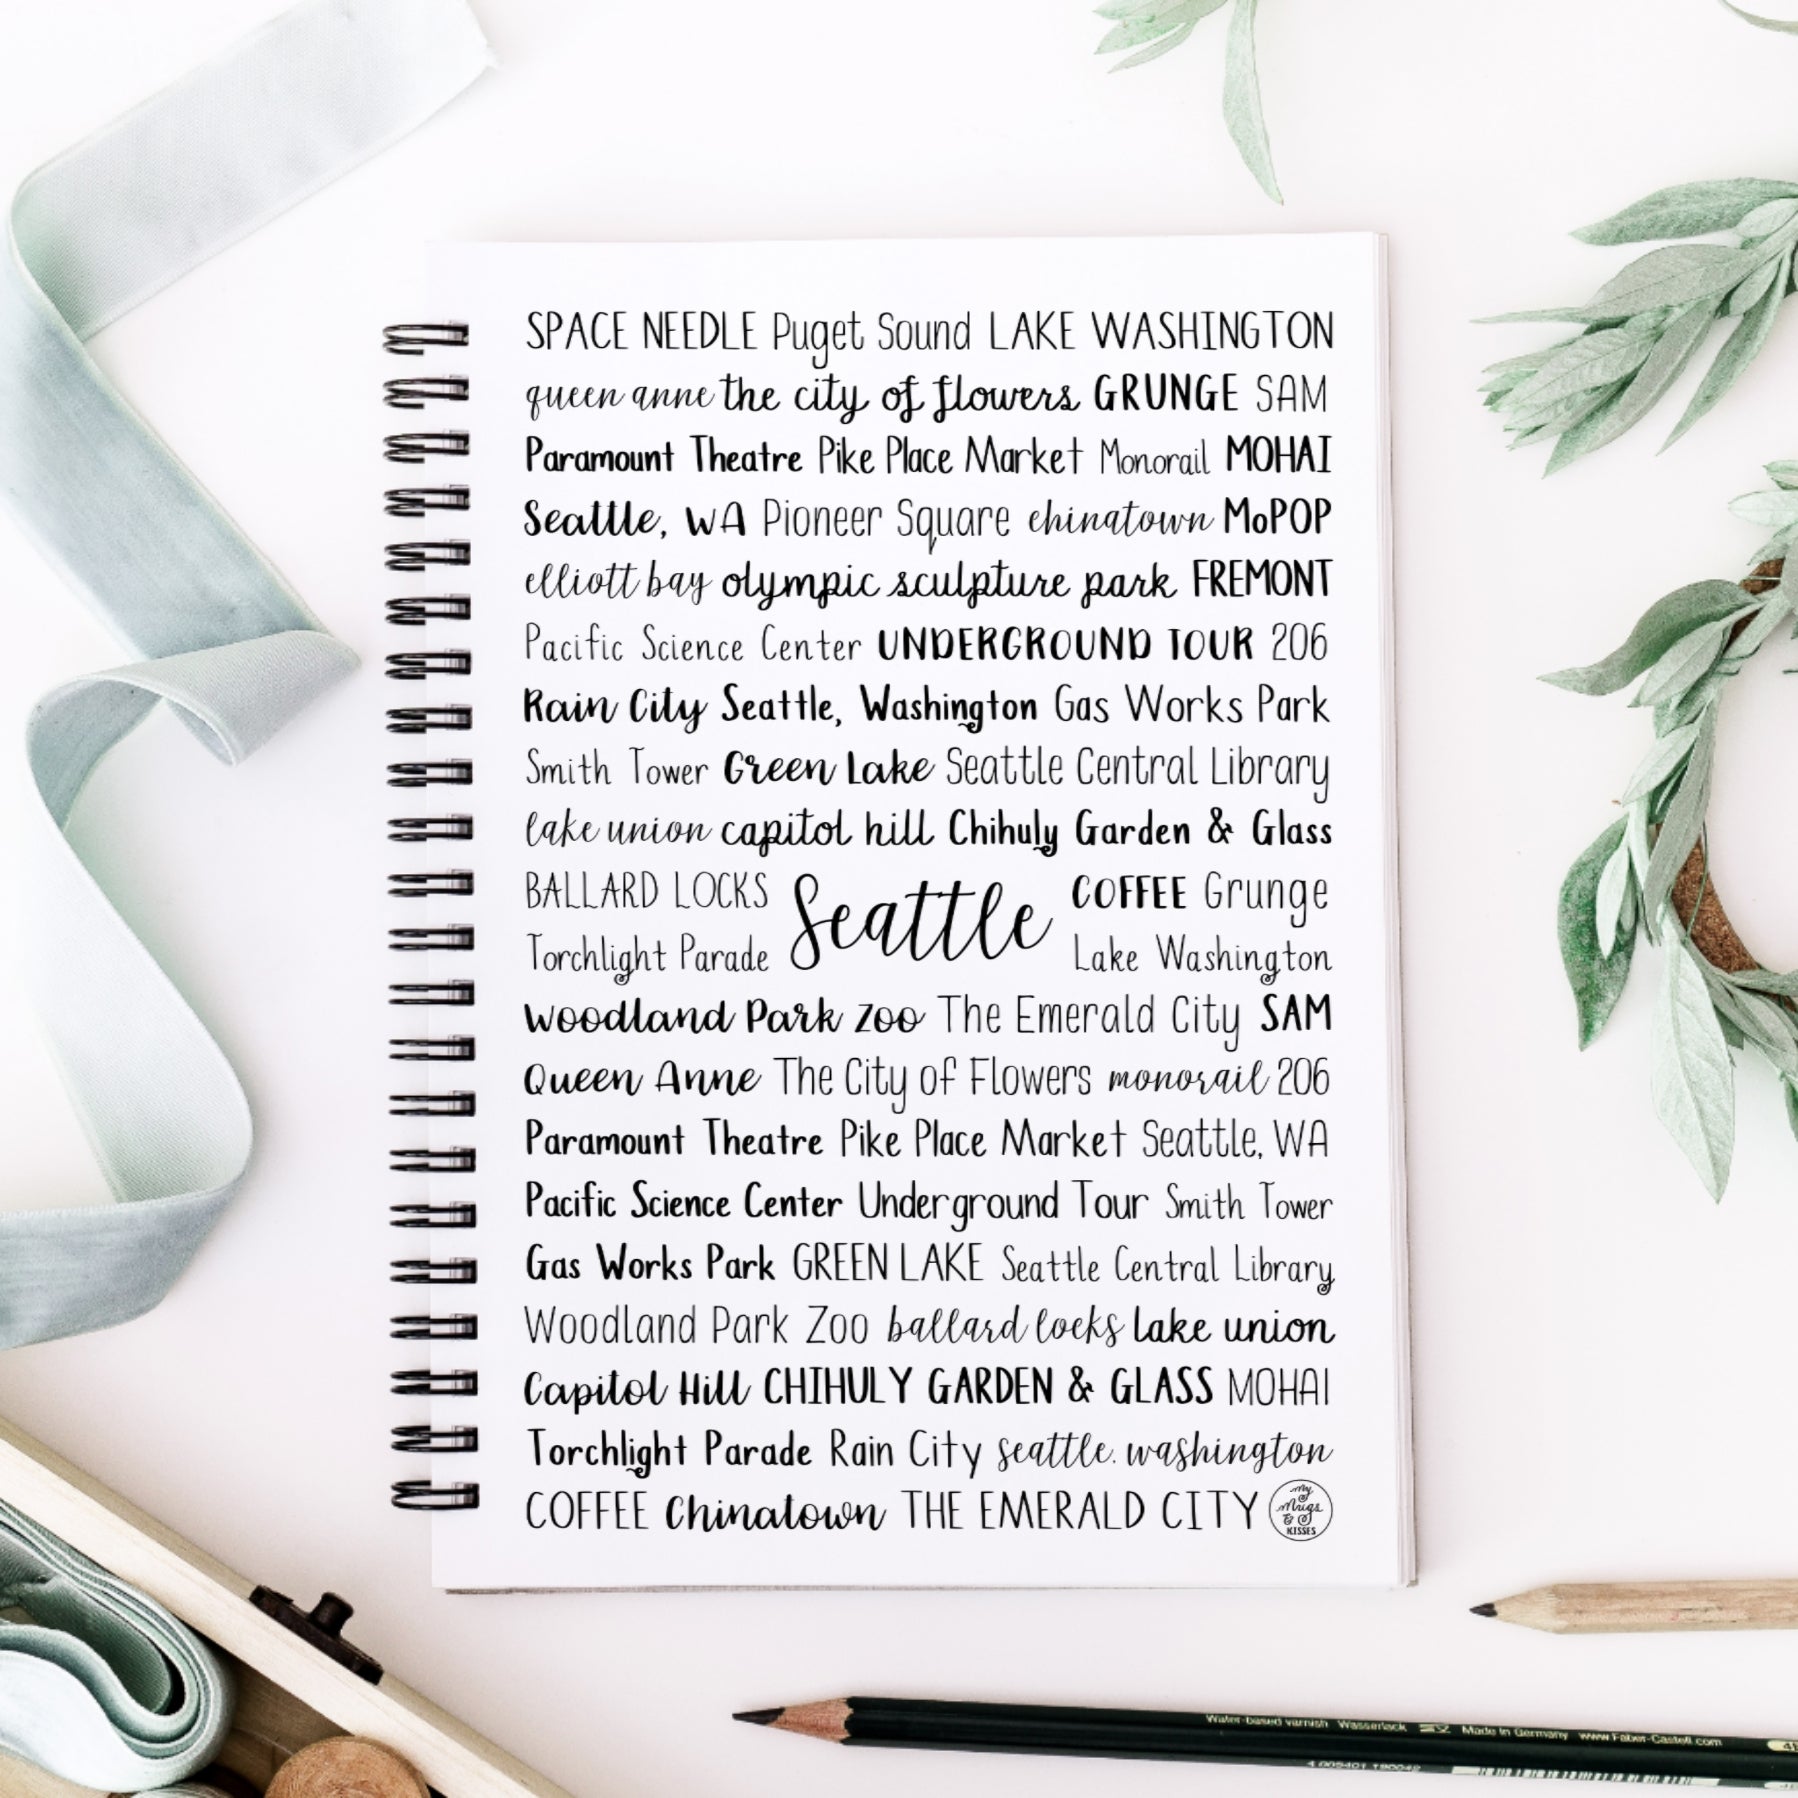 SPACE NEEDLE Puget Sound LAKE WASHINGTON
queen anne the city of flowers GRUNGE SAM
Paramount Theatre Pike Place Market Monorail MOHAI
Seattle, WA Pioneer Square chinatown MoPOP
elliott bay olympic sculpture park FREMONT
Pacific Science Center UNDERGROUND TOUR 206
Rain City Seattle, Washington Gas Works Park
Smith Tower Green Lake Seattle Central Library
lake union capitol hill Chihuly Garden & Glass
BALLARD LOCKS Seattle COFFEE Grunge
Torchlight Parade Lake Washington
Woodland Park Zoo The Emerald City SAM
Queen Anne The City of Flowers monorail 206
Paramount Theatre Pike Place Market Seattle, WA
Pacific Science Center Underground Tour Smith Tower
Gas Works Park GREEN LAKE Seattle Central Library
Woodland Park Zoo ballard locks lake union
Capitol Hill CHIHULY GARDEN & GLASS MOHAI
Torchlight Parade Rain City seattle. washington
COFFEE Chinatown THE EMERALD CITY
My
Mugs
&
KISSES
Water-based varnish Wasserlack Made in Germany www.Faber-Castell.com
4 005401 190042